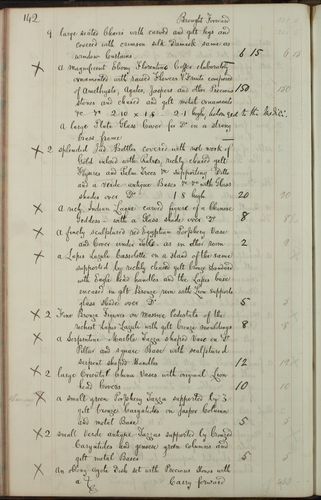 142
Brought Forward
9 large seated Chairs with carved and gilt legs and
covered with crimson silk Damask same as
window Curtains 6 15
X a Magnificent Ebony Florentine Coffer elaborately
ornamented with raised Flowers & Fruits composed
of Amethysts, Agates, Jaspers and other Precious 150
Stones and chased and gilt metal ornaments
2.10 x 1.8 - 2.1 high,
a large Plate Glass Cover for Do in a strong
brass frame
X 2 splendid Jad Bottles covered with net work of
Gold inlaid with Rubies, richly chased gilt
Figures and Palm Trees supporting Do
and a Verde antique Bases with Glass
shades over Do 1.8 high 20
X a rich Indian Agate carved figure of a Chinese
Goddess - with a Glass shade over Do 8
X a finely sculptured red Egyptian Porphyry Vase
and Cover under table as in other room 2
X a Lapis Lazuli Cassolette on a stand of the same
supported by richly chased gilt bronze
with Eagle head handles and the Lapis base
encased in gilt Bronze rim with Lion supports
glass shade over Do 5
X 2 Fine Bronze Figures on Massive Pedestals of the
richest Lapis Lazuli with gilt bronze mouldings 8
X a Serpentine Marble Tazza shaped Vase on Do
Pillar and square Base with sculptured
serpent shaped Handles 12
X 2 large Oriental China Vases with original Lion
head Covers 10
X a small green Porphyry Tazza supported by 3
gilt bronze Caryatides on Jasper Column
and metal Base 5
X 2 small Verde antique Tazzas supported by Bronzed
Caryatides and green columns and
gilt metal Bases 5
X an oblong Agate Dish set with Precious Stones with
a Carry forward